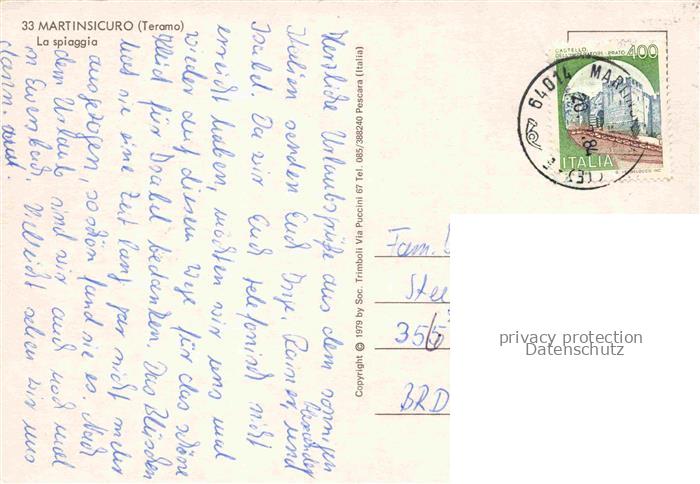 33 MARTINSICURO (Teramo)
La spiaggia
Herzliche Urlaubsgrüße aus dem sonnigen
Italien senden Euch Inge, Rainer, Alexander und
Isabel. Da wir Euch telefonisch nicht
erreicht haben, möchten wir uns mal
wieder auf diesem Wege für das schöne
Kleid für Isabel bedanken. Das Blüschen
hat sie eine Zeit lang gar nicht mehr
ausgezogen so schön fand sie es. Nach
dem Urlaub sind wir auch noch mal
in Ewersbach. Vielleicht sehen wir uns
dann mal.
Copyright © 1979 by Soc. Trimboli Via Puccini 67 Tel. 085/388240 Pescara (Italia)
CASTELLO
DELL'IMPERATORE - PRATO
400
ITALIA
64014 MARTIN
Fam.
Stei
356
BRD
privacy protection
Datenschutz